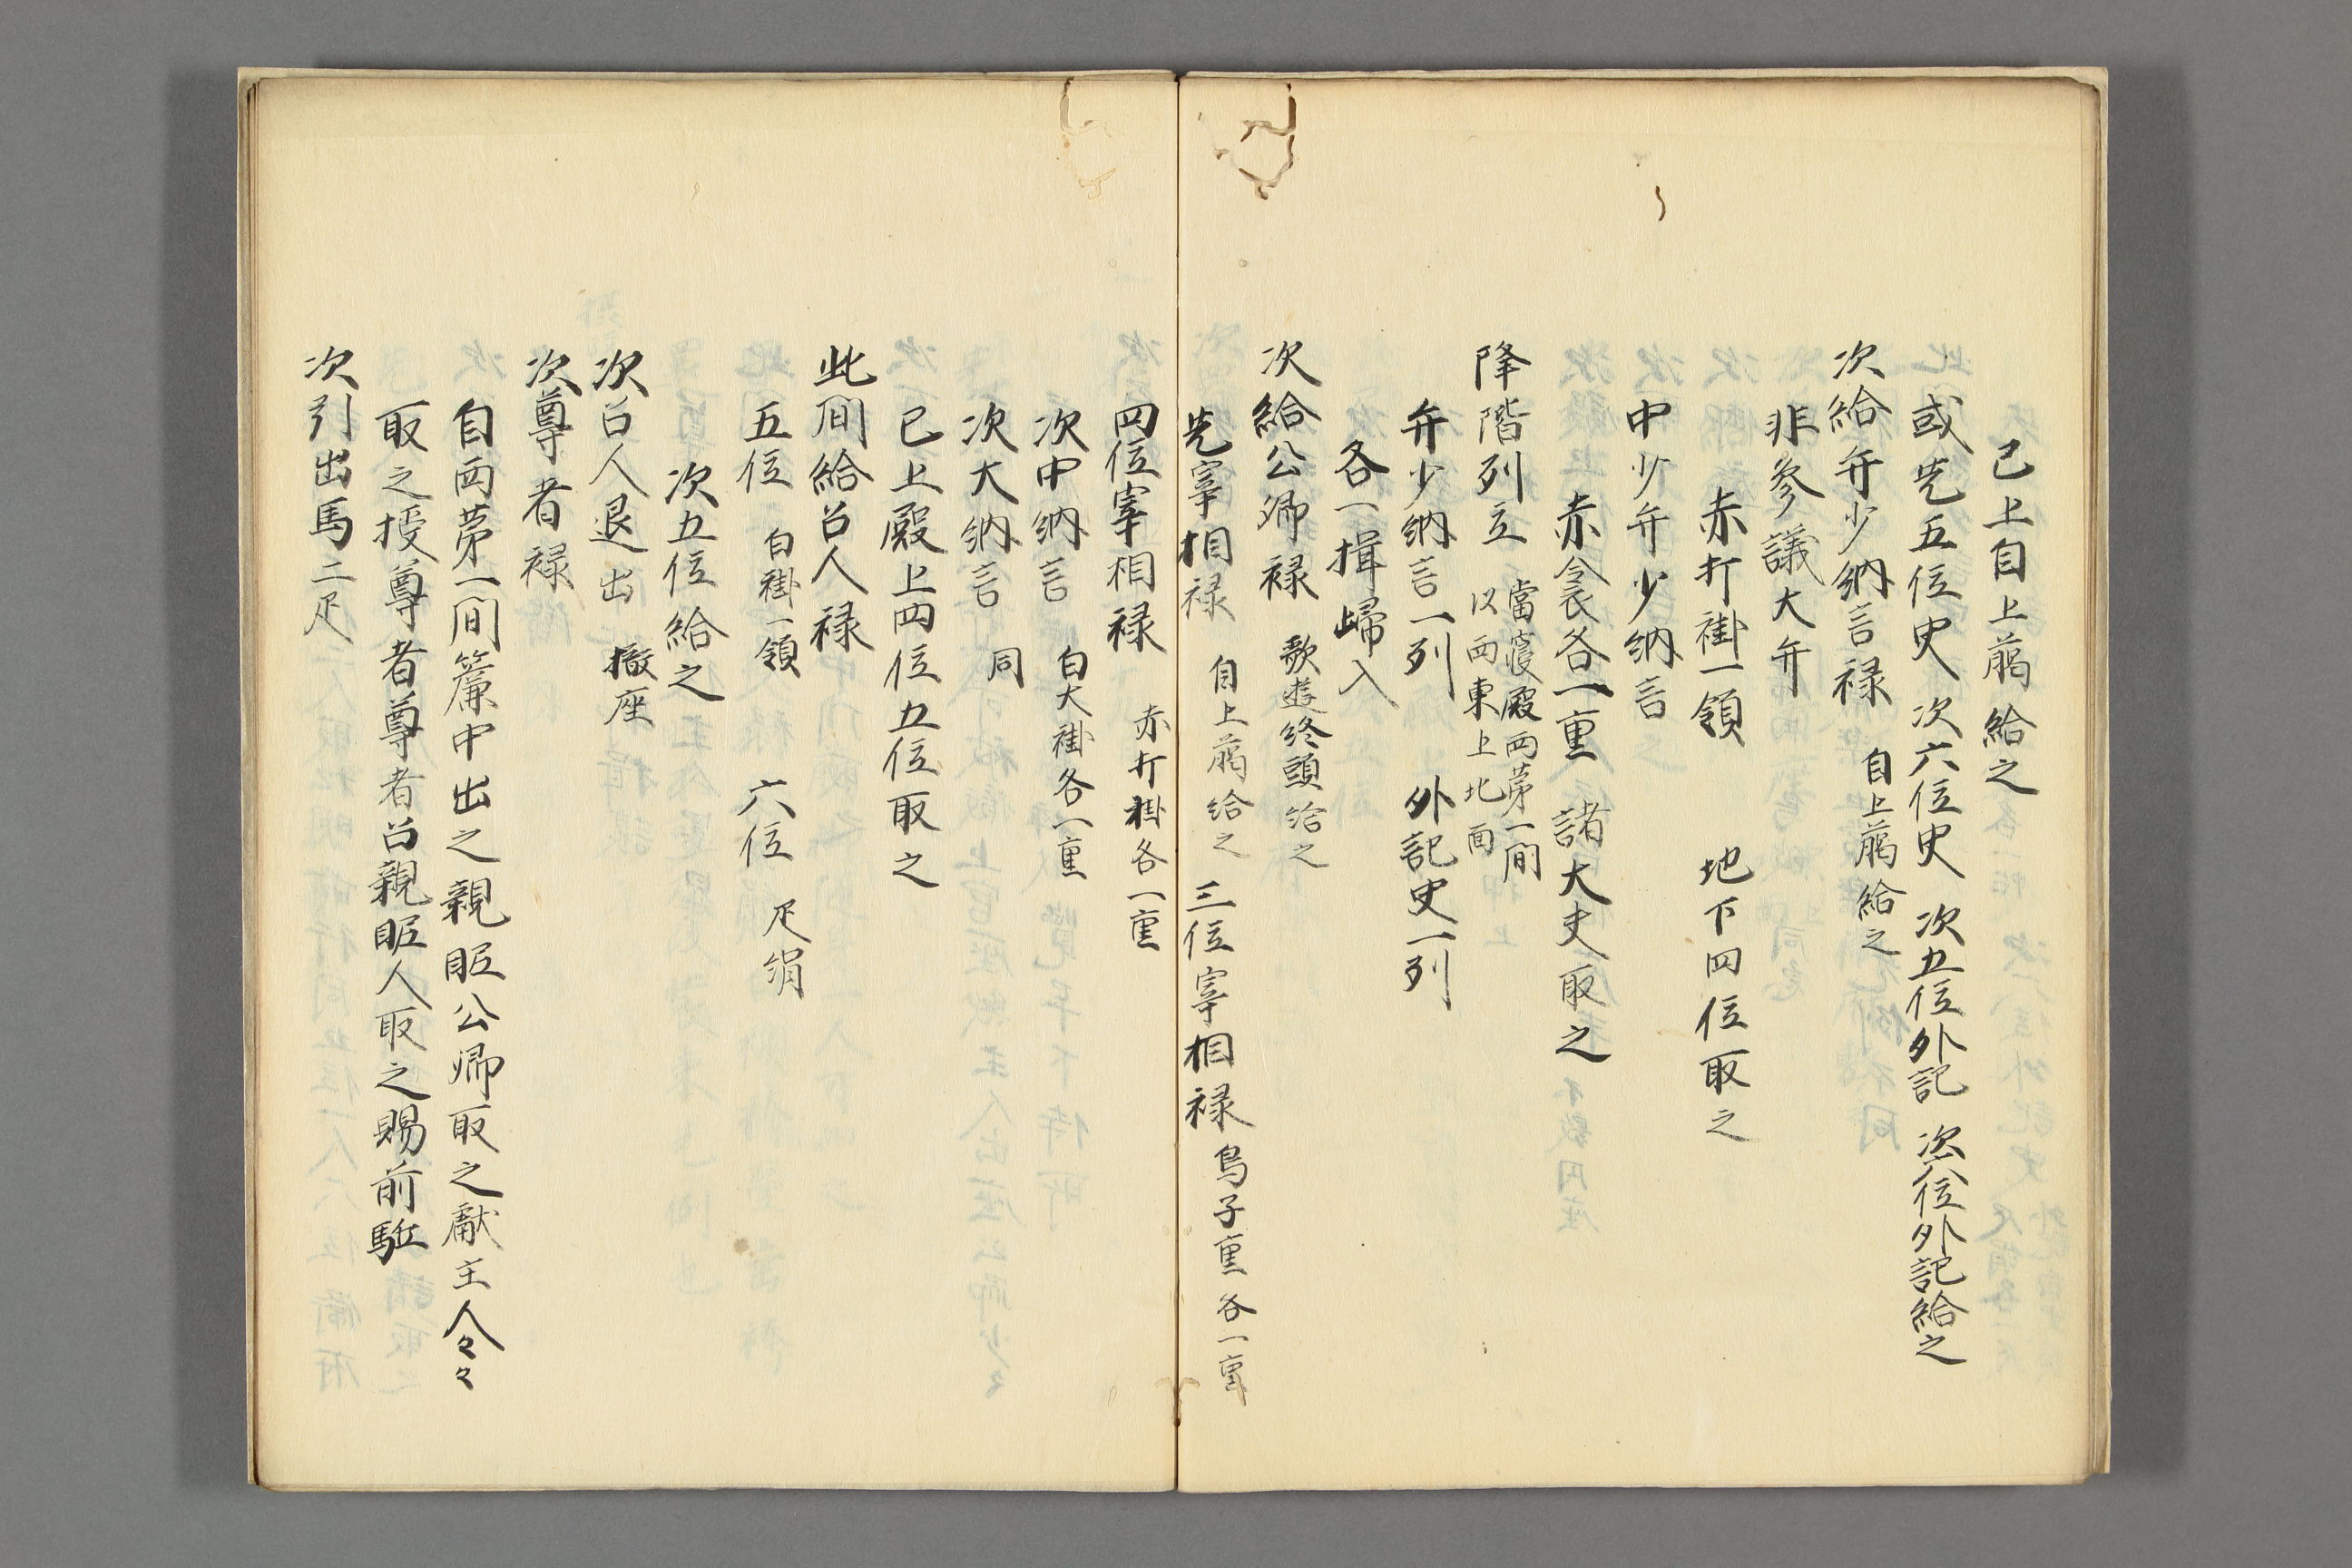 已上自上﨟給之
或先五位史 次六位史 次五位外記 次六位外記給之
次給弁少納言禄 自上﨟給之
非參議大弁
赤打褂一領 地下四位取之
中少弁少納言
赤衾各一重 諸大夫取之
降階列立 當寝殿西苐一間
以西東上北面
弁少納言一列 外記史一列
各一揖歸入
次給公卿禄 歌遊終頭給之
先宰相禄 自上﨟給之 三位宰相禄 鳥子重各一重
四位宰相禄 赤打褂各一重
次中納言 白大褂各一重
次大納言 同
已上殿上四位五位取之
此間給召人禄
五位 白褂一領 六位 疋絹
次五位給之
次召人退出 撤座
次尊者禄
自西苐一間簾中出之親昵公卿取之獻主人々々
取之授尊者尊者召親昵人取之賜前駈
次引出馬二疋